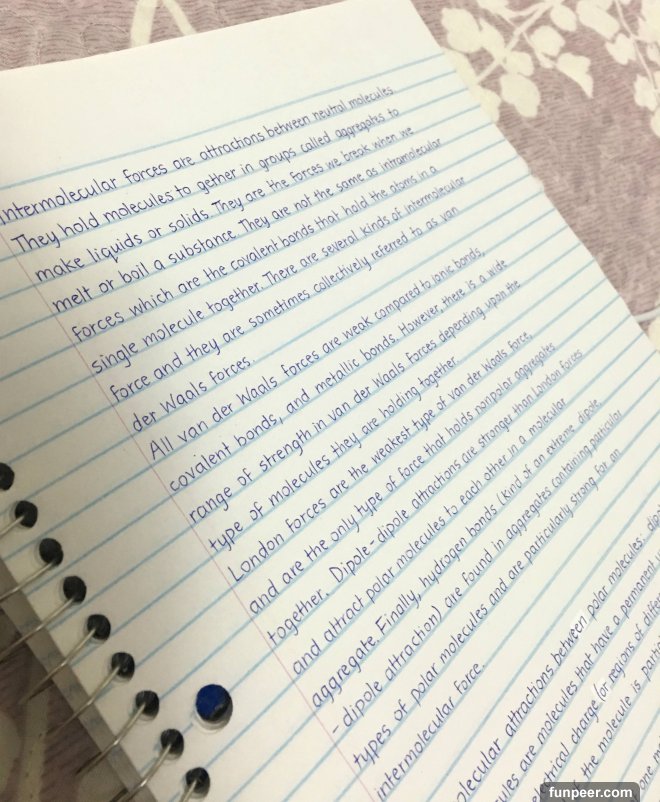 Intermolecular forces are attractions between neutral molecules.
They hold molecules to gether in groups called aggregates to
make liquids or solids. They are the forces we break when we
melt or boil a substance. They are not the same as intramolecular
forces which are the covalent bonds that hold the atoms in a
single molecule together. There are several kinds of intermolecular
force and they are sometimes collectively referred to as van
der Waals forces.
All van der Waals forces are weak compared to ionic bonds,
covalent bonds, and metallic bonds. However, there is a wide
range of strength in van der Waals forces depending upon the
type of molecules they are holding together.
London forces are the weakest type of van der Waals force,
and are the only type of force that holds nonpolar aggregates
together. Dipole-dipole attractions are stronger than London forces
and attract polar molecules to each other in a molecular
aggregate. Finally, hydrogen bonds (kind of an extreme dipole
-dipole attraction) are found in aggregates containing particular
types of polar molecules and are particularly strong for an
intermolecular force.
attractions between polar molecules.
are molecules that have a permanent
charge (or regions of
the molecule is
one
funpeer.com